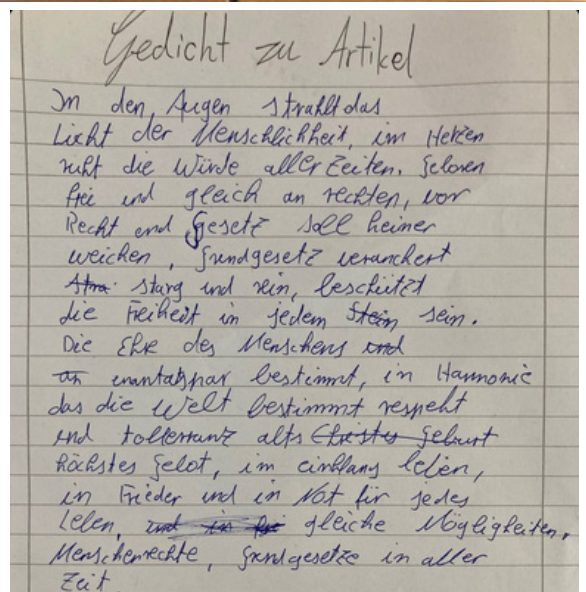 Gedicht zu Artikel
In den Augen strahlt das
Licht der Menschlichkeit, im Herzen
ruht die Würde aller Zeiten. Geboren
frei und gleich an rechten, vor
Recht und Gesetz soll keiner
weichen, Grundgesetz veranchert
Stra starg und rein, beschützt
die Freiheit in jedem Stein sein.
Die Ehre des Menschens und
an unantaspar bestimmt, in Harmonie
das die Welt bestimmt respekt
und tollerranz alts Christus Geburt
höchstes Gebot, im einklang leben,
in Frieder und in Not für jedes
Leben, und in für gleiche Mögligkeiten,
Menschenrechte, Grundgesetze in aller
Zeit